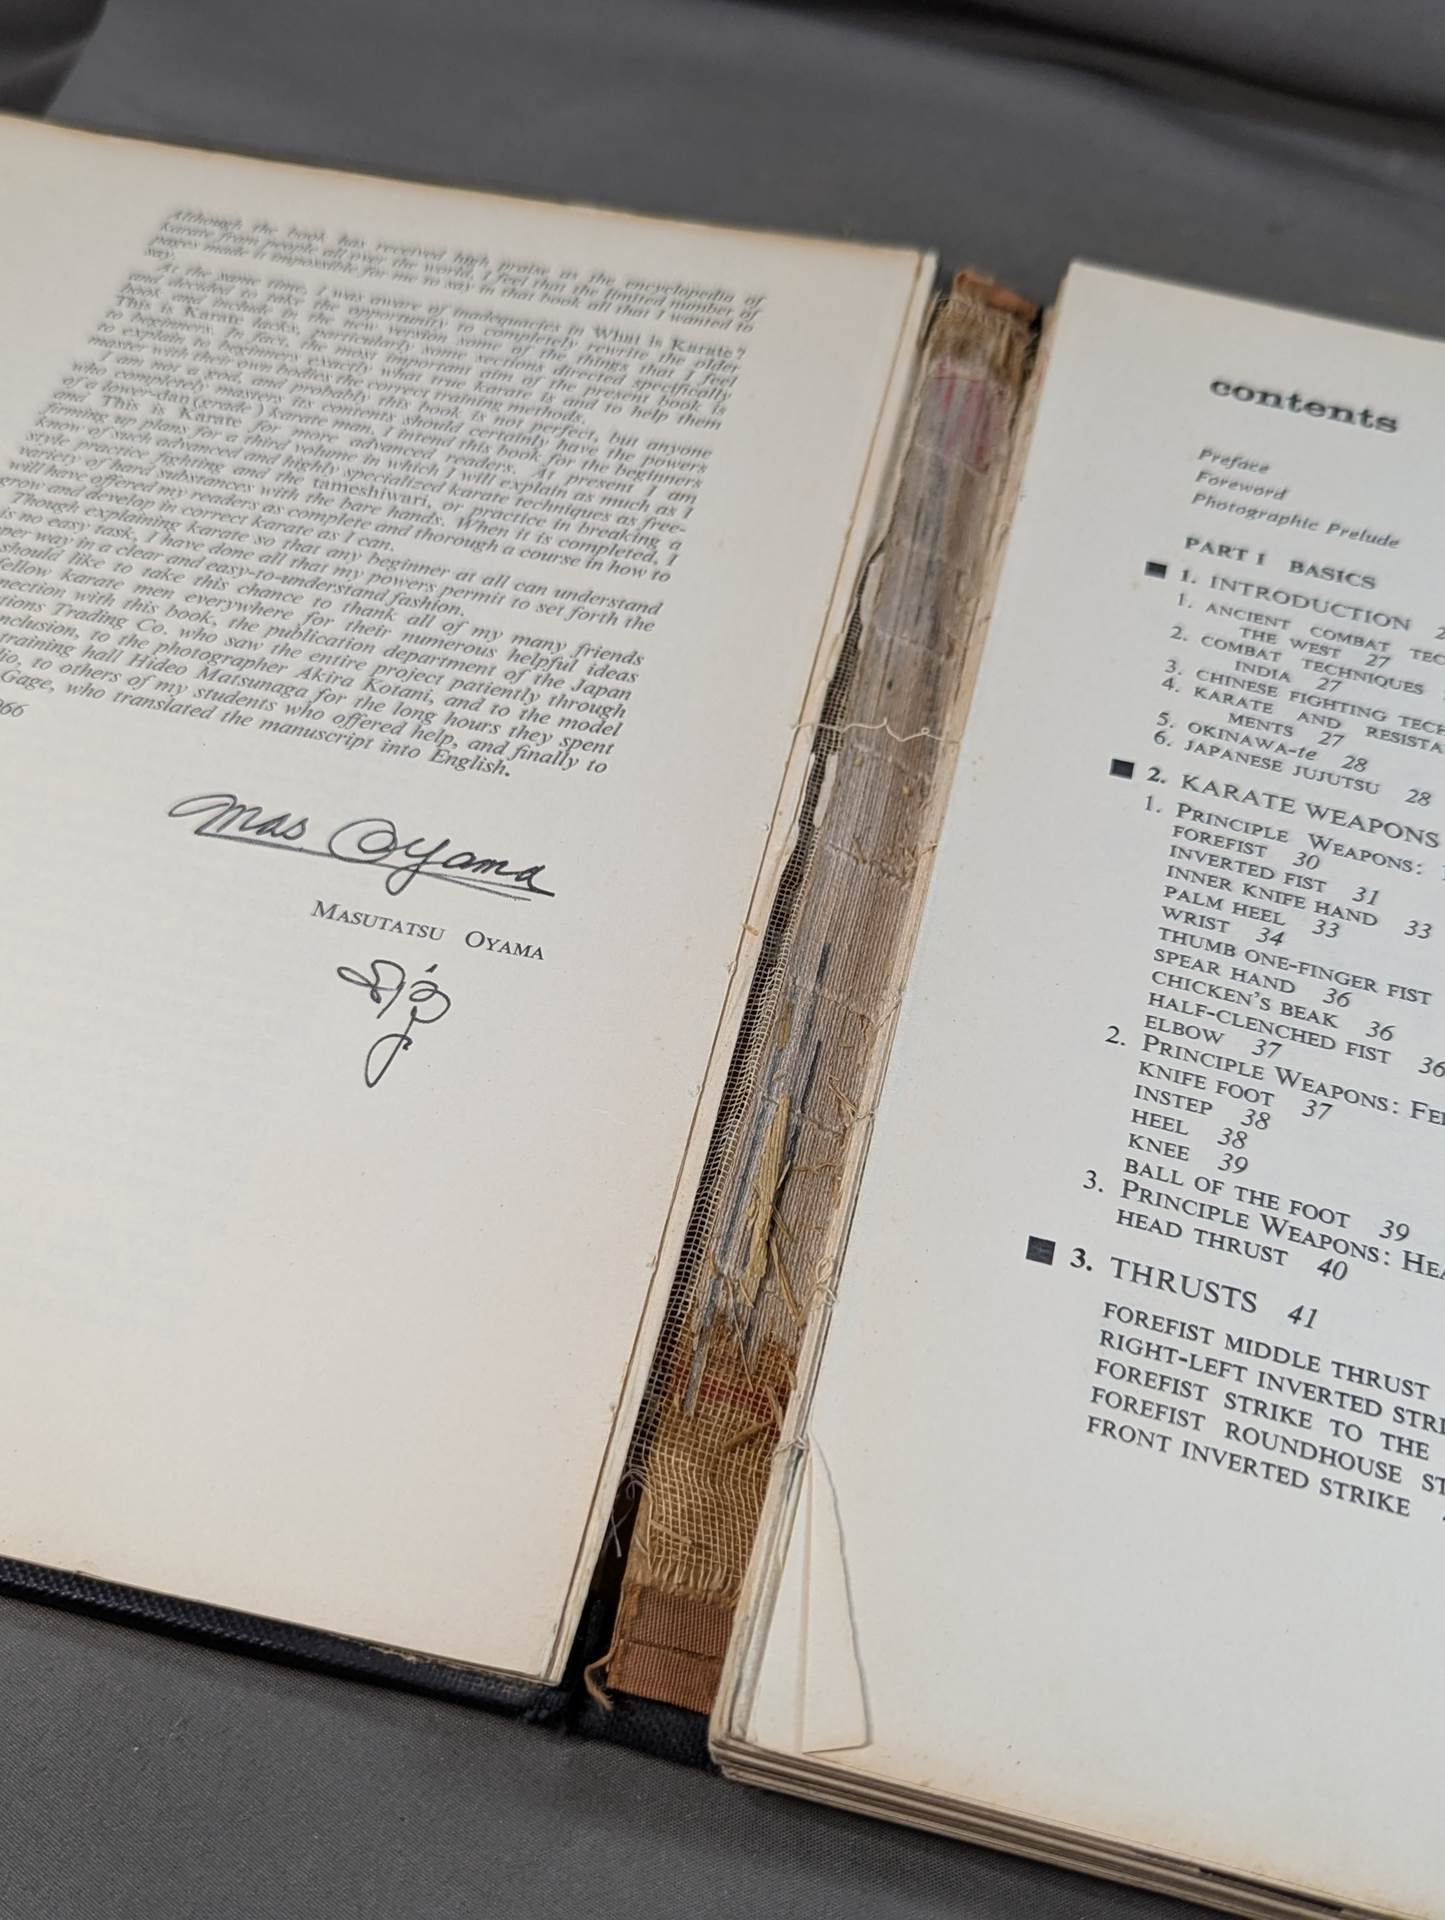 Although the book has received high praise as the encyclopedia of
karate from people all over the world, I feel that the limited number of
pages made it impossible for me to say in that book all that I wanted to
say.
At the same time, I was aware of inadequacies in What is Karate?
and decided to take the opportunity to completely rewrite the older
book and include in the new version some of the things that I feel
This is Karate lacks, particularly some sections directed specifically
to beginners. In fact, the most important aim of the present book is
to explain to beginners exactly what true karate is and to help them
master with their own bodies the correct training methods.
I am not a god, and probably this book is not perfect, but anyone
who completely masters its contents should certainly have the powers
of a lower-dan (grade) karate man. I intend this book for the beginners
and This is Karate for more advanced readers. At present I am
firming up plans for a third volume in which I will explain as much as I
know of such advanced and highly specialized karate techniques as free-
style practice fighting and the tameshiwari, or practice in breaking a
variety of hard substances with the bare hands. When it is completed, I
will have offered my readers as complete and thorough a course in how to
grow and develop in correct karate as I can.
Though explaining karate so that any beginner at all can understand
is no easy task, I have done all that my powers permit to set forth the
per way in a clear and easy-to-understand fashion.
should like to take this chance to thank all of my many friends
fellow karate men everywhere for their numerous helpful ideas
nection with this book, the publication department of the Japan
tions Trading Co. who saw the entire project patiently through
nclusion, to the photographer Akira Kotani, and to the model
training hall Hideo Matsunaga for the long hours they spent
dio, to others of my students who offered help, and finally to
Gage, who translated the manuscript into English.
966
Mas Oyama
MASUTATSU OYAMA
contents
Preface
Foreword
Photographic Prelude
PART I BASICS
■ 1. INTRODUCTION 2
1. ANCIENT COMBAT TEC
THE WEST 27
2. COMBAT TECHNIQUES
INDIA 27
3. CHINESE FIGHTING TECH
4. KARATE AND RESISTA
MENTS 27
5. OKINAWA-te 28
6. JAPANESE JUJUTSU 28
■ 2. KARATE WEAPONS
1. PRINCIPLE WEAPONS:
FOREFIST 30
INVERTED FIST 31
INNER KNIFE HAND 33
PALM HEEL 33
WRIST 34
THUMB ONE-FINGER FIST
SPEAR HAND 36
CHICKEN'S BEAK 36
HALF-CLENCHED FIST 36
ELBOW 37
2. PRINCIPLE WEAPONS: FEE
KNIFE FOOT 37
INSTEP 38
HEEL 38
KNEE 39
BALL OF THE FOOT 39
3. PRINCIPLE WEAPONS: HEA
HEAD THRUST 40
■ 3. THRUSTS 41
FOREFIST MIDDLE THRUST
RIGHT-LEFT INVERTED STRI
FOREFIST STRIKE TO THE
FOREFIST ROUNDHOUSE ST
FRONT INVERTED STRIKE